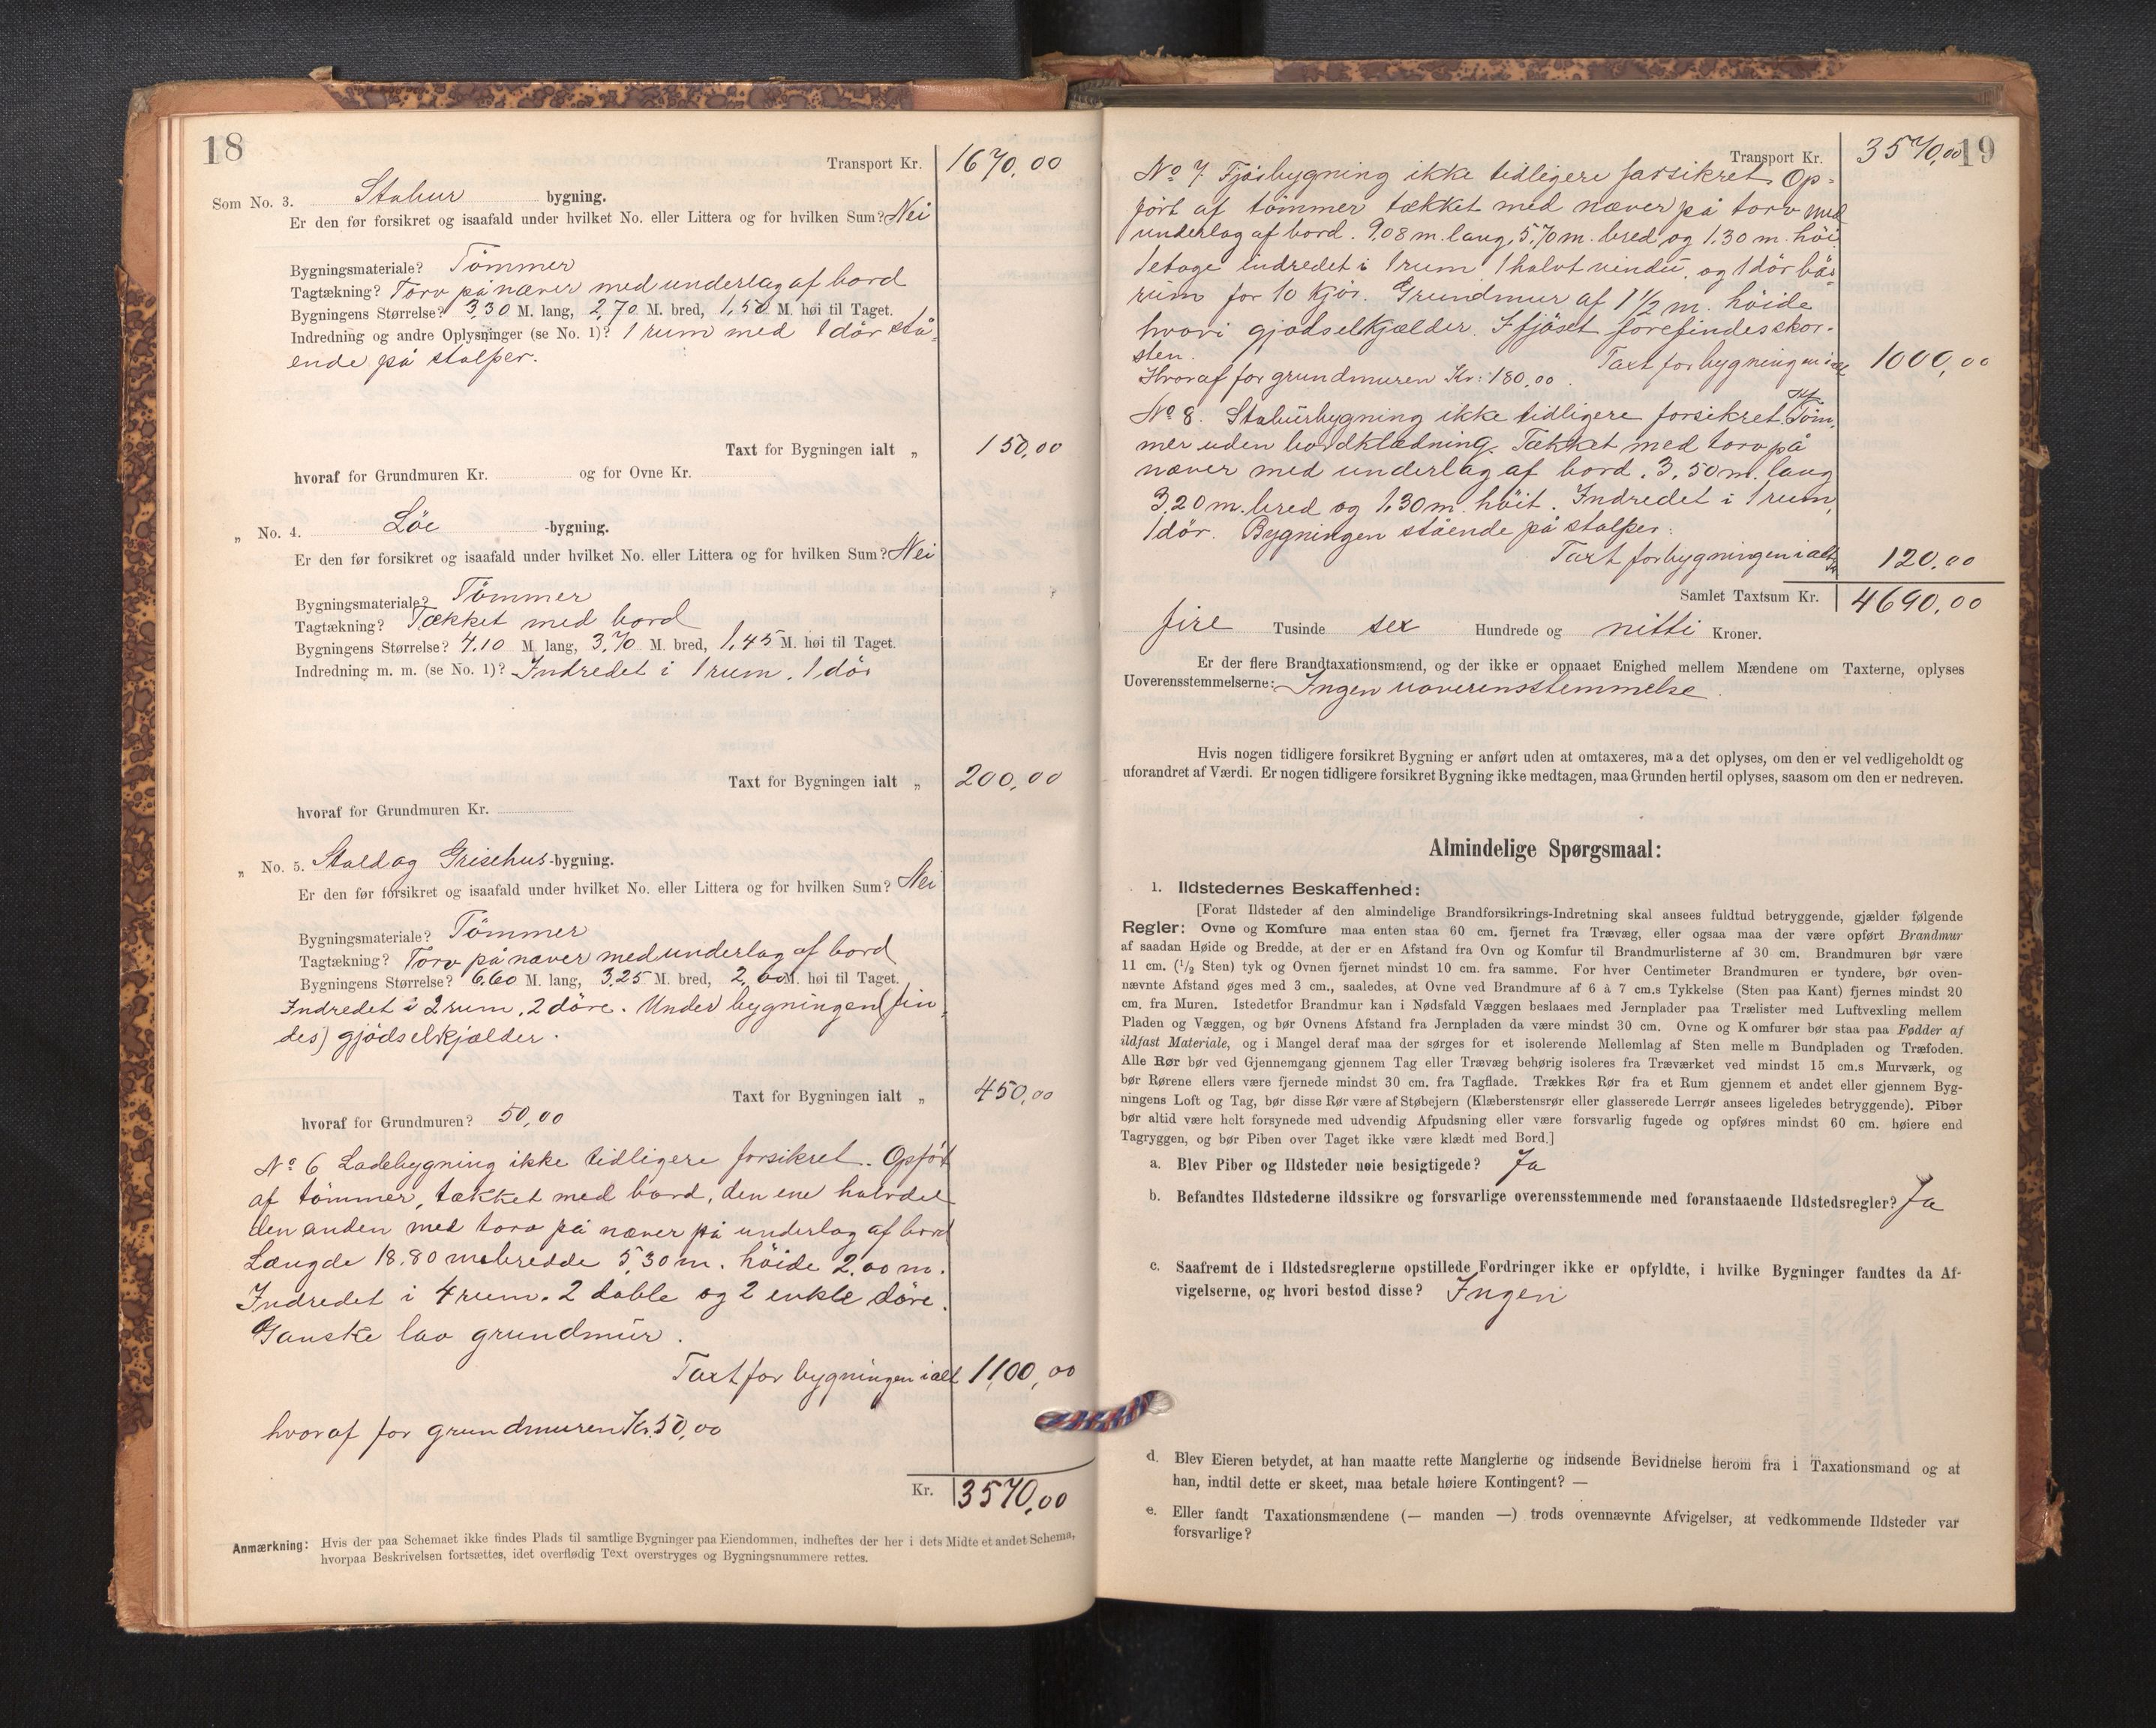 18
Transport Kr. 1670,00
Som No. 3. Stabur bygning.
Er den før forsikret og isaafald under hvilket No. eller Littera og for hvilken Sum? Nei
Bygningsmateriale? Tömmer
Tagtækning? Torv på næver med underlag af bord
Bygningens Størrelse? 3,30 M. lang, 2,70 M. bred, 1,50 M. høi til Taget.
Indredning og andre Oplysninger (se No. 1)? 1 rum med 1 dör stå-
ende på stolper.
Taxt for Bygningen ialt „ 150,00
hvoraf for Grundmuren Kr. og for Ovne Kr.
„ No. 4. Löe -bygning.
Er den før forsikret og isaafald under hvilket No. eller Littera og for hvilken Sum? Nei
Bygningsmateriale? Tömmer
Tagtækning? Tækket med bord
Bygningens Størrelse? 4.10 M. lang, 3,70 M. bred, 1,45 M. høi til Taget.
Indredning m. m. (se No. 1)? Indredet i 1 rum. 1 dör
Taxt for Bygningen ialt „ 200,00
hvoraf for Grundmuren Kr.
„ No. 5. Stald og Grisehus -bygning.
Er den før forsikret og isaafald under hvilket No. eller Littera og for hvilken Sum? Nei
Bygningsmateriale? Tömmer
Tagtækning? Torv på næver med underlag af bord
Bygningens Størrelse? 6,60 M. lang, 3,25 M. bred, 2,00 M. høi til Taget.
Indredet i 2 rum, 2 döre. Under bygningen (fin-
des) gjödselkjælder.
Taxt for Bygningen ialt „ 450,00
hvoraf for Grundmuren? 50,00
No 6 Ladebygning ikke tidligere forsikret. Opfört
af tömmer, tækket med bord, den ene halvdel
den anden med torv på næver på underlag af bord
Længde 18.80 m bredde 5,30 m. höide 2.00 m.
Indredet i 4 rum. 2 doble og 2 enkle döre.
Ganske lav grundmur.
Taxt for bygningen ialt 1100,00
hvoraf for grundmuren Kr. 50,00
Kr. 3570,00
Anmærkning: Hvis der paa Schemaet ikke findes Plads til samtlige Bygninger paa Eiendommen, indheftes der her i dets Midte et andet Schema,
hvorpaa Beskrivelsen fortsættes, idet overflødig Text overstryges og Bygningsnummere rettes.
19
Transport Kr. 3570,00
No 7. Fjösbygning ikke tidligere forsikret. Op-
fört af tömmer tækket med næver på torv med
underlag af bord. 9,08 m. lang, 5,70 m. bred og 1,30 m. höi
1 etage indredet i 1 rum 1 halvt vindu, og 1 dör bås-
rum for 10 kjör. Grundmur af 1 1/2 m. höide
hvori gjödselkjælder. I fjöset forefindes skor-
sten. Taxt for bygningen ialt 1000,00
Hvoraf for grundmuren Kr: 180,00.
No 8. Staburbygning ikke tidligere forsikret. Töm-
mer uden bordklædning. Tækket med torv på
næver med underlag af bord. 3,50 m. lang
3,20 m. bred og 1,30 m. höit. Indredet i 1 rum,
1 dör. Bygningen stående på stolper.
Taxt for bygningen ialt 120,00
Samlet Taxtsum Kr. 4690,00
fire Tusinde sex Hundrede og nitti Kroner.
Er der flere Brandtaxationsmænd, og der ikke er opnaaet Enighed mellem Mændene om Taxterne, oplyses
Uoverensstemmelserne: Ingen uoverensstemmelse.
Hvis nogen tidligere forsikret Bygning er anført uden at omtaxeres, maa det oplyses, om den er vel vedligeholdt og
uforandret af Værdi. Er nogen tidligere forsikret Bygning ikke medtagen, maa Grunden hertil oplyses, saasom om den er nedreven.
Almindelige Spørgsmaal:
1. Ildstedernes Beskaffenhed:
[Forat Ildsteder af den almindelige Brandforsikrings-Indretning skal ansees fuldtud betryggende, gjælder følgende
Regler: Ovne og Komfure maa enten staa 60 cm. fjernet fra Trævæg, eller ogsaa maa der være opført Brandmur
af saadan Høide og Bredde, at der er en Afstand fra Ovn og Komfur til Brandmurlisterne af 30 cm. Brandmuren bør være
11 cm. (1/2 Sten) tyk og Ovnen fjernet mindst 10 cm. fra samme. For hver Centimeter Brandmuren er tyndere, bør oven-
nævnte Afstand øges med 3 cm., saaledes, at Ovne ved Brandmure af 6 à 7 cm.s Tykkelse (Sten paa Kant) fjernes mindst 20
cm. fra Muren. Istedetfor Brandmur kan i Nødsfald Væggen beslaaes med Jernplader paa Trælister med Luftvexling mellem
Pladen og Væggen, og bør Ovnens Afstand fra Jernpladen da være mindst 30 cm. Ovne og Komfurer bør staa paa Fødder af
ildfast Materiale, og i Mangel deraf maa der sørges for et isolerende Mellemlag af Sten mellem Bundpladen og Træfoden.
Alle Rør bør ved Gjennemgang gjennem Tag eller Trævæg behørig isoleres fra Træværket ved mindst 15 cm.s Murværk, og
bør Rørene ellers være fjernede mindst 30 cm. fra Tagflade. Trækkes Rør fra et Rum gjennem et andet eller gjennem Byg-
ningens Loft og Tag, bør disse Rør være af Støbejern (Klæberstensrør eller glasserede Lerrør ansees ligeledes betryggende). Piber
bør altid være helt forsynede med udvendig Afpudsning eller være forsvarlig fugede og opføres mindst 60 cm. høiere end
Tagryggen, og bør Piben over Taget ikke være klædt med Bord.]
a. Blev Piber og Ildsteder nøie besigtigede? Ja
b. Befandtes Ildstederne ildssikre og forsvarlige overensstemmende med foranstaaende Ildstedsregler? Ja
c. Saafremt de i Ildstedsreglerne opstillede Fordringer ikke er opfyldte, i hvilke Bygninger fandtes da Af-
vigelserne, og hvori bestod disse? Ingen
d. Blev Eieren betydet, at han maatte rette Manglerne og indsende Bevidnelse herom fra 1 Taxationsmand og at
han, indtil dette er skeet, maa betale høiere Kontingent? —
e. Eller fandt Taxationsmændene (— manden —) trods ovennævnte Afvigelser, at vedkommende Ildsteder var
forsvarlige?